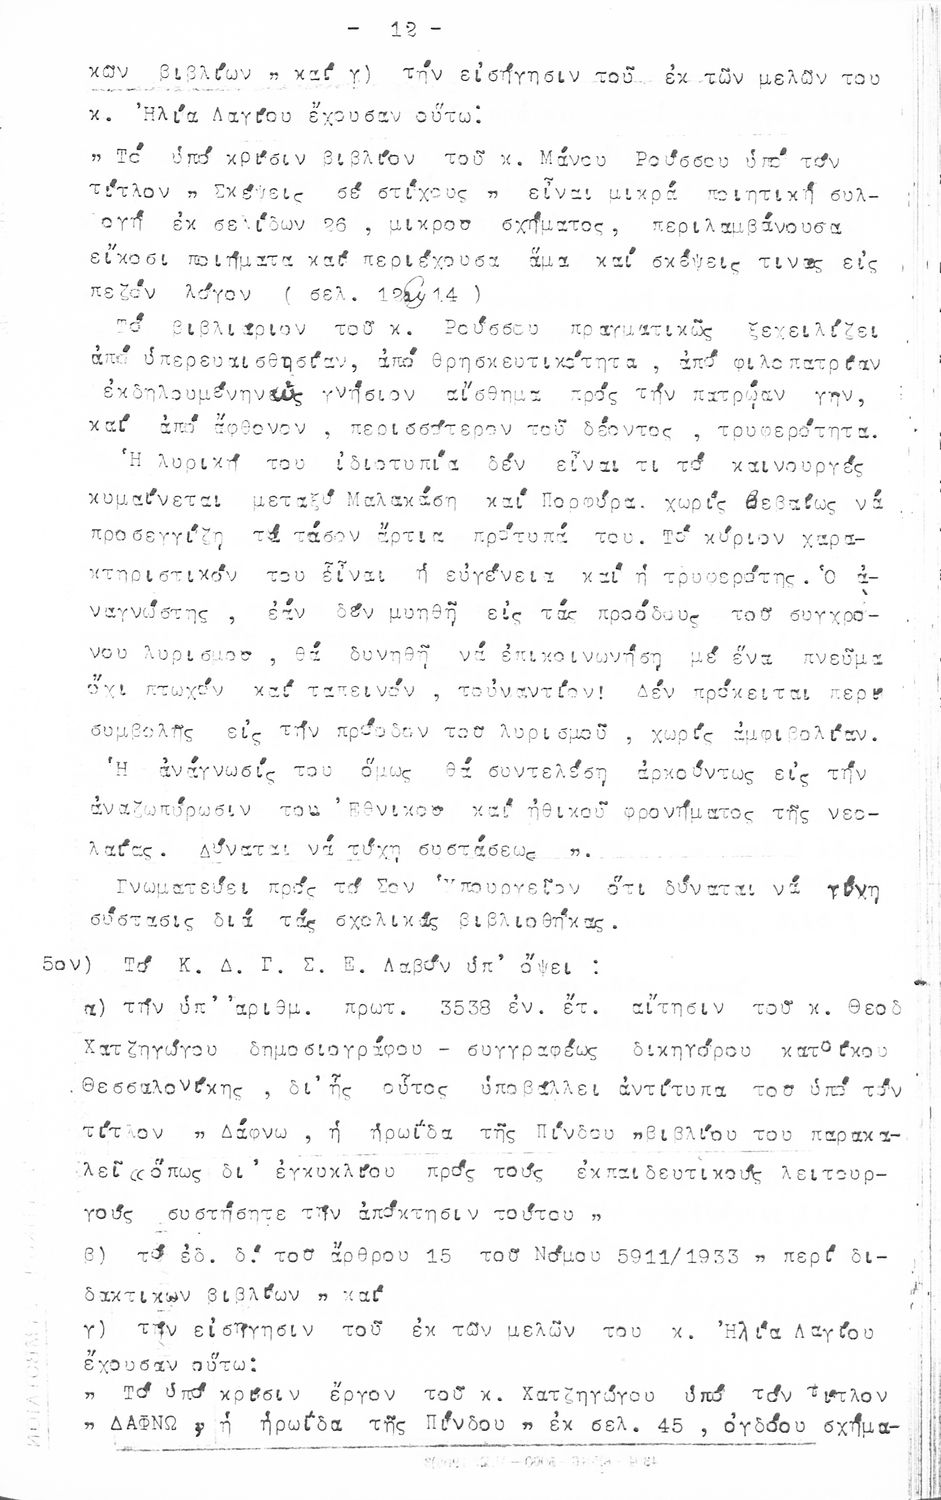 - 12 -
κῶν βιβλίων " καί γ) τήν εἰσήγησιν τοῦ ἐκ τῶν μελῶν του
κ. Ἠλία Λαγίου ἔχουσαν οὕτω:
" Τό ὑπό κρίσιν βιβλίον τοῦ κ. Μάνου Ρούσσου ὑπό τόν
τίτλον " Σκέψεις σέ στίχους " εἶναι μικρά ποιητική συλ-
ογή ἐκ σελίδων 26 , μικροῦ σχήματος, περιλαμβάνουσα
εἴκοσι ποιήματα καί περιέχουσα ἅμα καί σκέψεις τινας εἰς
πεζόν λόγον ( σελ. 12 14 )
Τό βιβλιάριον τοῦ κ. Ρούσσου πραγματικῶς ξεχειλίζει
ἀπό ὑπερευαισθησίαν, ἀπό θρησκευτικότητα , ἀπό φιλοπατρίαν
ἐκδηλουμένην ὡς γνήσιον αἴσθημα πρός τήν πατρώαν γην,
καί ἀπό ἄφθονον , περισσότερον τοῦ δέοντος , τρυφερότητα.
Ἡ λυρική του ἰδιοτυπία δέν εἶναι τι τό καινουργές
κυμαίνεται μεταξύ Μαλακάση καί Πορφύρα. χωρίς βεβαίως νά
προσεγγίζη τά τόσον ἄρτια πρότυπά του. Τό κύριον χαρα-
κτηριστικόν του εἶναι ἡ εὐγένεια καί ἡ τρυφερότης. Ὁ ἀ-
ναγνώστης , ἐάν δέν μυηθῆ εἰς τάς προόδους τοῦ συγχρό-
νου λυρισμοῦ , θά δυνηθῆ νά ἐπικοινωνήση μέ ἕνα πνεῦμα
ὄχι πτωχόν καί ταπεινόν , τοὐναντίον! Δέν πρόκειται περί
συμβολῆς εἰς τήν πρόοδον τοῦ λυρισμοῦ , χωρίς ἀμφιβολίαν.
Ἡ ἀνάγνωσίς του ὅμως θά συντελέση ἀρκούντως εἰς τήν
ἀναζωπύρωσιν του Ἐθνικοῦ καί ἠθικοῦ φρονήματος τῆς νεο-
λαίας. Δύναται νά τύχη συστάσεως ".
Γνωματεύει πρός τό Σον Ὑπουργεῖον ὅτι δύναται νά τύχη
σύστασις διά τάς σχολικάς βιβλιοθήκας.
5ον) Τό Κ. Δ. Γ. Σ. Ε. Λαβόν ὑπ' ὄψει :
α) τήν ὑπ' ἀριθμ. πρωτ. 3538 ἐν. ἔτ. αἴτησιν τοῦ κ. Θεοδ
Χατζηγώγου δημοσιογράφου - συγγραφέως δικηγόρου κατοίκου
Θεσσαλονίκης , δι' ἧς οὗτος ὑποβάλλει ἀντίτυπα τοῦ ὑπό τόν
τίτλον " Δάφνω , ἡ ἡρωίδα τῆς Πίνδου "βιβλίου του παρακα-
λεῖ «ὅπως δι' ἐγκυκλίου πρός τούς ἐκπαιδευτικούς λειτουρ-
γούς συστήσητε τήν ἀπόκτησιν τούτου "
β) τό ἐδ. δ.' τοῦ ἄρθρου 15 τοῦ Νόμου 5911/1933 " περί δι-
δακτικῶν βιβλίων " καί
γ) τήν εἰσήγησιν τοῦ ἐκ τῶν μελῶν του κ. Ἠλία Λαγίου
ἔχουσαν οὕτω:
" Τό ὑπό κρίσιν ἔργον τοῦ κ. Χατζηγώγου ὑπό τόν τίτλον
" ΔΑΦΝΩ , ἡ ἡρωίδα τῆς Πίνδου " ἐκ σελ. 45 , ὀγδόου σχήμα-